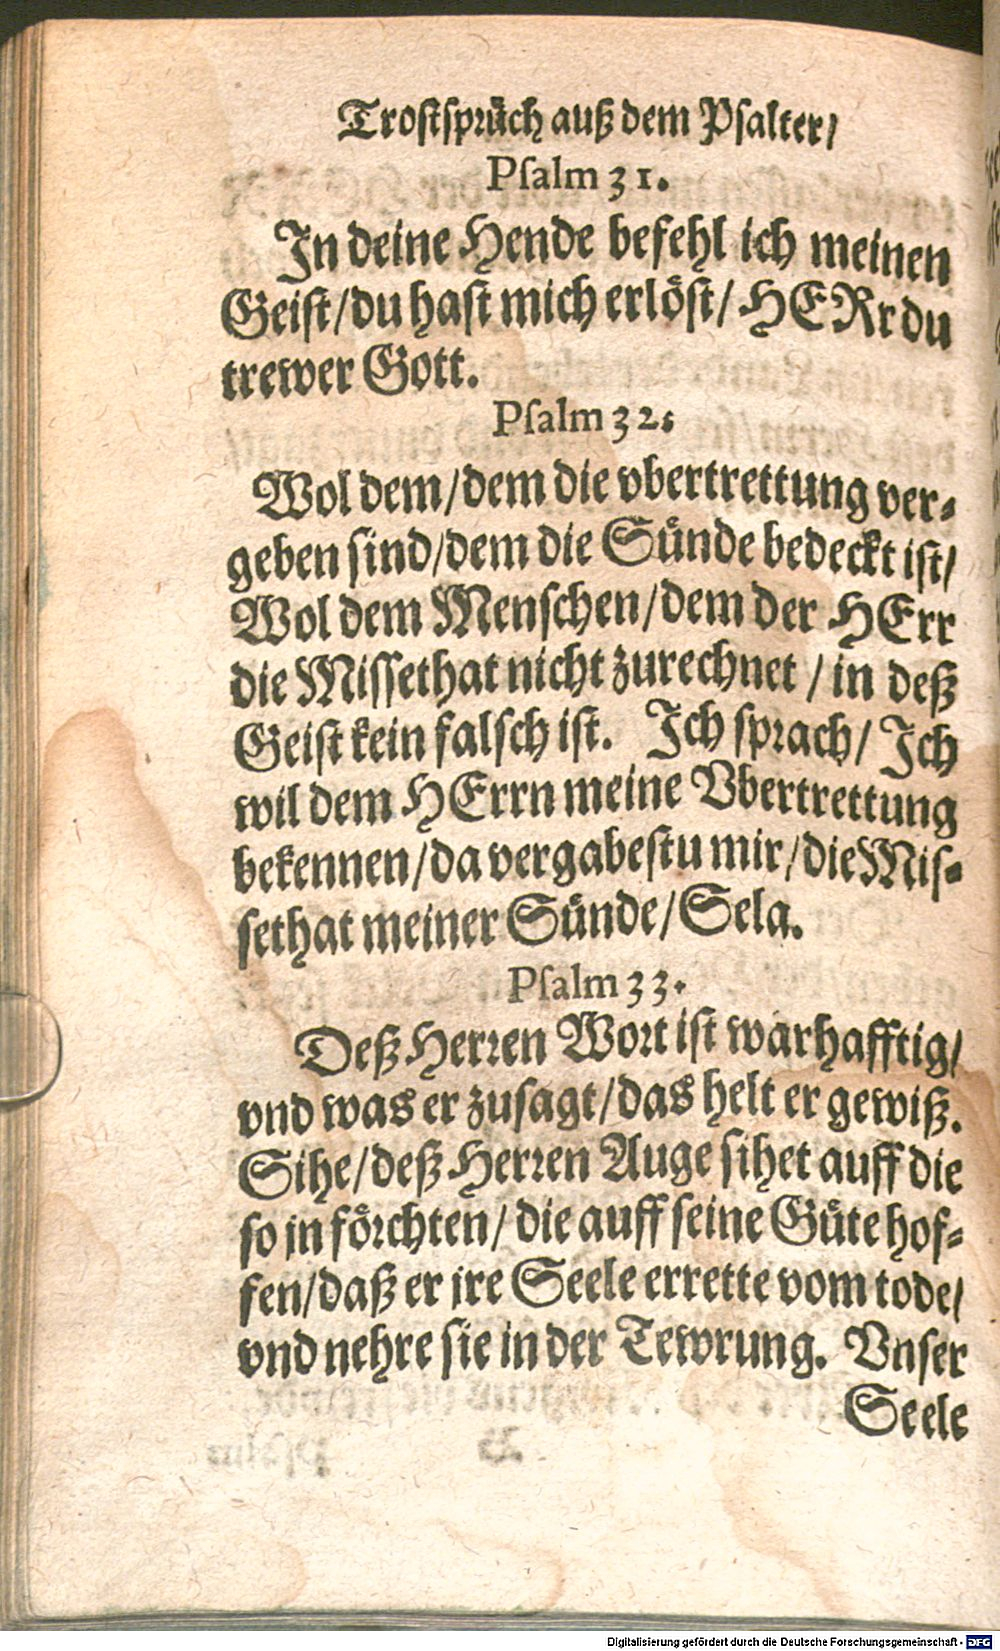 Trostsprüch auß dem Psalter/
Psalm 31.
In deine Hende befehl ich meinen
Geist/du hast mich erlöst/ HERr du
trewer Gott.
Psalm 32.
Wol dem/dem die vbertrettung ver-
geben sind/dem die Sünde bedeckt ist/
Wol dem Menschen/dem der HErr
die Missethat nicht zurechnet / in deß
Geist kein falsch ist. Ich sprach/ Ich
wil dem HErrn meine Vbertrettung
bekennen/da vergabestu mir/die Mis-
sethat meiner Sünde/Sela.
Psalm 33.
Deß Herren Wort ist warhafftig/
vnd was er zusagt/das helt er gewiß.
Sihe/deß Herren Auge sihet auff die
so jn förchten/ die auff seine Güte hof-
fen/daß er jre Seele errette vom tode/
vnd nehre sie in der Tewrung. Vnser
Seele
Digitalisierung gefördert durch die Deutsche Forschungsgemeinschaft - DFG